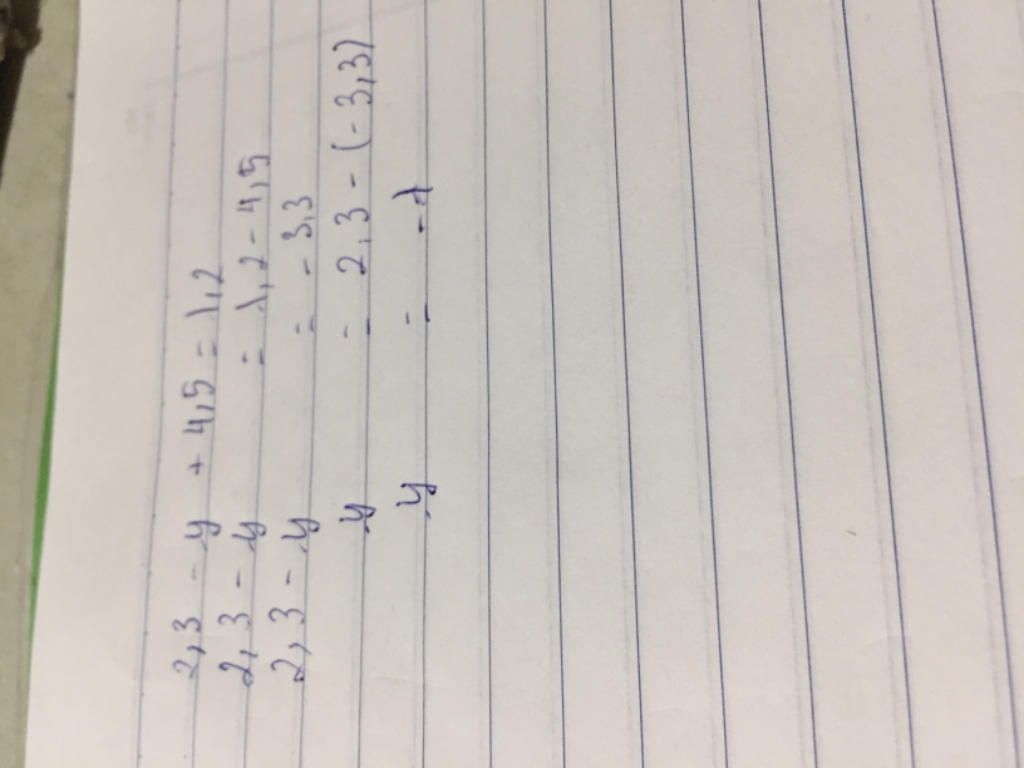 2,3 - y + 4,5 = 1,2
2,3 - y = 1,2 - 4,5
2,3 - y = - 3,3
y = 2,3 - (- 3,3)
y = - 1